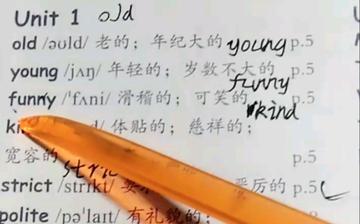 Unit 1 old
old /əʊld/ 老的；年纪大的 young p.5
young /jʌŋ/ 年轻的；岁数不大的 p.5
funny
funny /ˈfʌni/ 滑稽的；可笑的 p.5
kind
体贴的；慈祥的；
宽容的 p.5
stric
strict /strɪkt/ 严厉的 p.5
polite /pəˈlaɪt/ 有礼貌的；